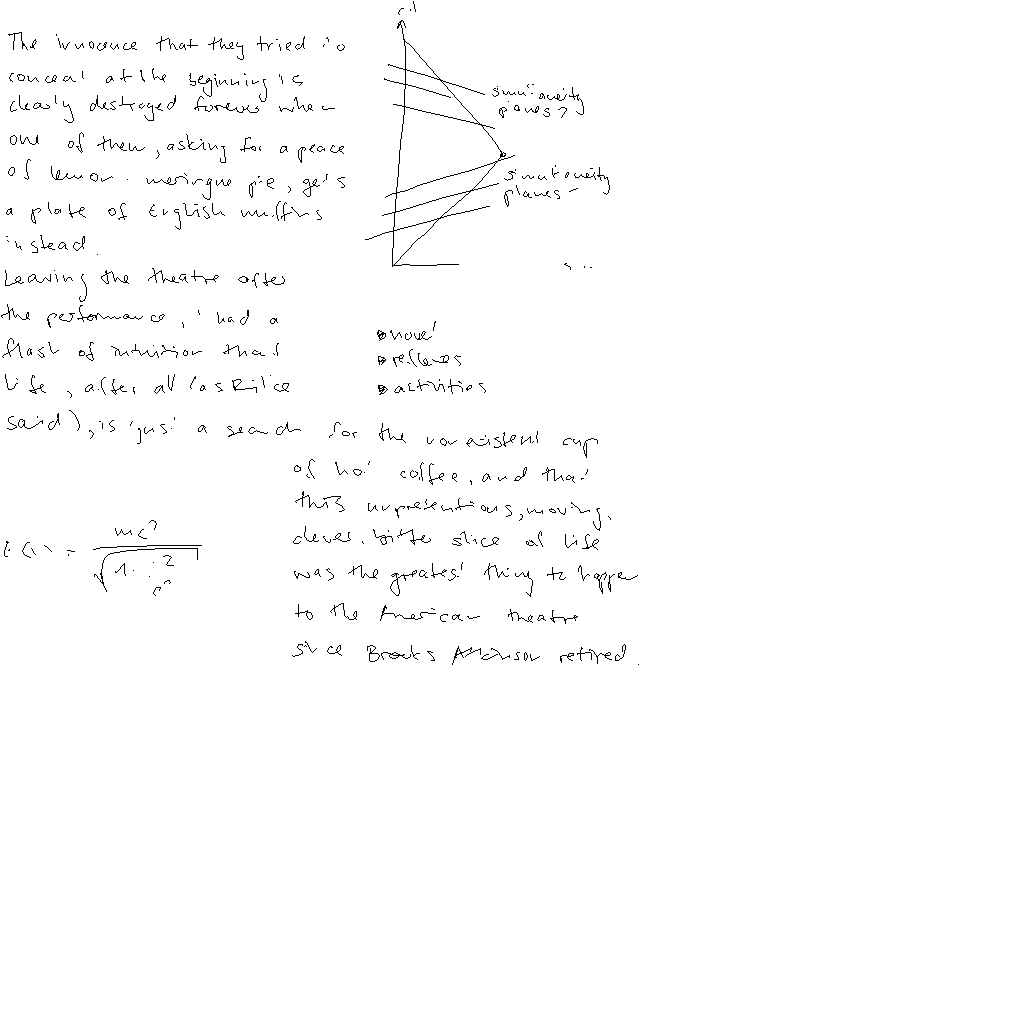 The innocence that they tried to
conceal at the beginning is
clearly destroyed forever when
one of them, asking for a peace
of lemon - meringue pie, gets
a plate of English muffins
instead.
Leaving the theatre after
the performance, I had a
flash of intuition that
life, after all (as Rilke
said), is just a search for the nonexistent cup
of hot coffee, and that
this unpretentious, moving,
clever, bitter slice of life
was the greatest thing to happen
to the American theatre
since Brooks Atkinson retired.
c.t
simultaneity
planes >
simultaneity
planes -
novel
relieves
activities
mc²